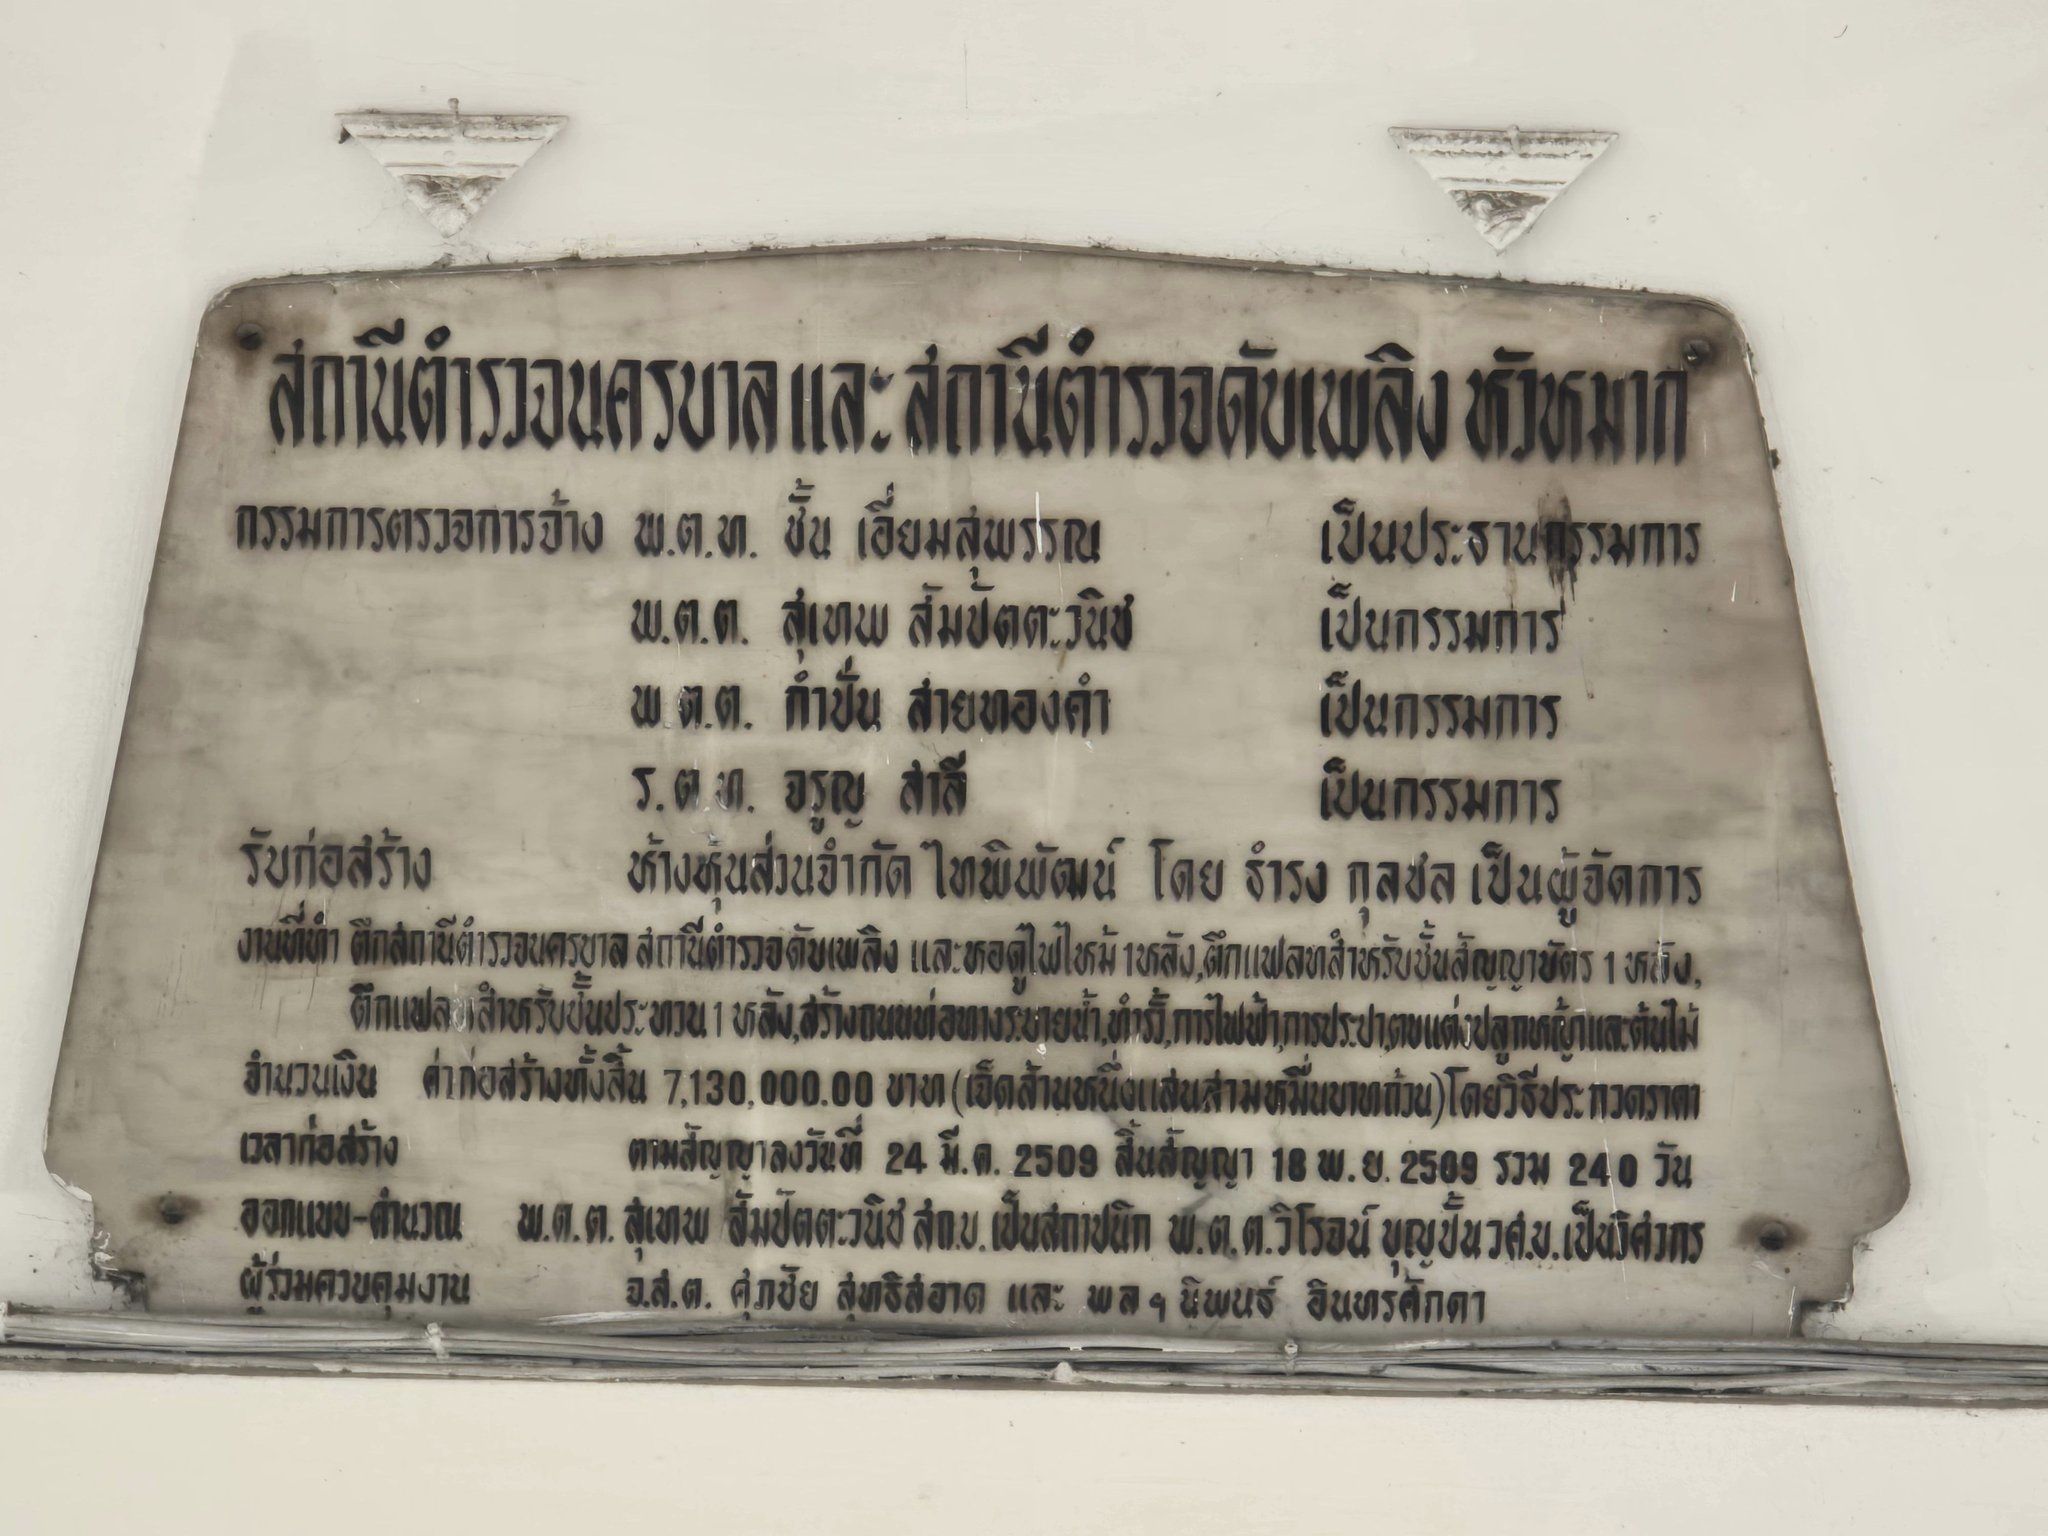 สถานีตำรวจนครบาล และ สถานีตำรวจดับเพลิง หัวหมาก
กรรมการตรวจการจ้าง พ.ต.ท. ชั้น เอี่ยมสุพรรณ เป็นประธานกรรมการ
พ.ต.ต. สุเทพ สัมปัตตะวนิช เป็นกรรมการ
พ.ต.ต. กำปั่น สายทองคำ เป็นกรรมการ
ร.ต.ท. จรูญ สาลี เป็นกรรมการ
รับก่อสร้าง ห้างหุ้นส่วนจำกัด ไทพิพัฒน์ โดย ธำรง กุลชล เป็นผู้จัดการ
งานที่ทำ ตึกสถานีตำรวจนครบาล สถานีตำรวจดับเพลิง และหอดูไฟไหม้ 1 หลัง, ตึกแฟลทสำหรับชั้นสัญญาบัตร 1 หลัง,
ตึกแฟลทสำหรับชั้นประทวน 1 หลัง, สร้างถนนท่อทางระบายน้ำ, ทำรั้ว, การไฟฟ้า, การประปา, ตบแต่งปลูกหญ้าและต้นไม้
จำนวนเงิน ค่าก่อสร้างทั้งสิ้น 7,130,000.00 บาท (เจ็ดล้านหนึ่งแสนสามหมื่นบาทถ้วน) โดยวิธีประกวดราคา
เวลาก่อสร้าง ตามสัญญาลงวันที่ 24 มี.ค. 2509 สิ้นสัญญา 18 พ.ย. 2509 รวม 240 วัน
ออกแบบ-คำนวณ พ.ต.ต. สุเทพ สัมปัตตะวนิช สถ.บ. เป็นสถาปนิก พ.ต.ต. วิโรจน์ บุญปั้น วศ.บ. เป็นวิศวกร
ผู้ร่วมควบคุมงาน จ.ส.ต. ศุภชัย สุทธิสอาด และ พลฯ นิพนธ์ อินทรศักดา